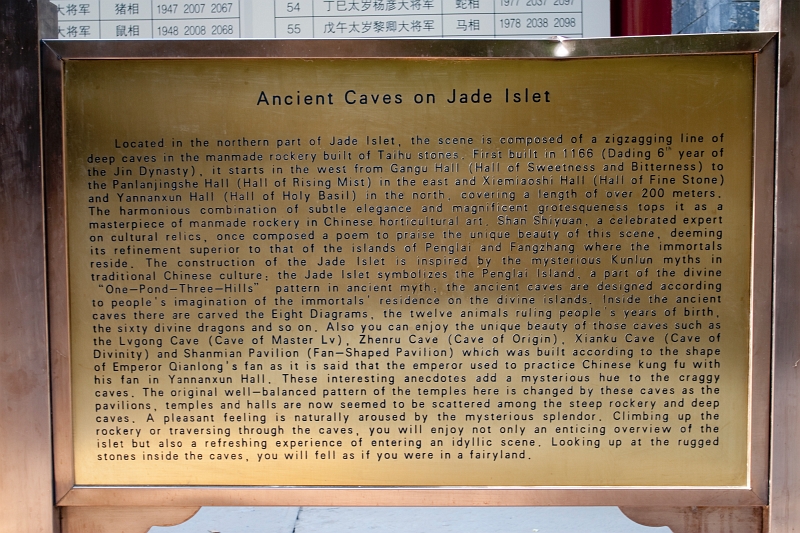 大将军 猪相 1947 2007 2067 54 丁巳太岁杨彦大将军 蛇相 1977 2037 2097
大将军 鼠相 1948 2008 2068 55 戊午太岁黎卿大将军 马相 1978 2038 2098
Ancient Caves on Jade Islet
Located in the northern part of Jade Islet, the scene is composed of a zigzagging line of
deep caves in the manmade rockery built of Taihu stones. First built in 1166 (Dading 6th year of
the Jin Dynasty), it starts in the west from Gangu Hall (Hall of Sweetness and Bitterness) to
the Panlanjingshe Hall (Hall of Rising Mist) in the east and Xiemiaoshi Hall (Hall of Fine Stone)
and Yannanxun Hall (Hall of Holy Basil) in the north, covering a length of over 200 meters.
The harmonious combination of subtle elegance and magnificent grotesqueness tops it as a
masterpiece of manmade rockery in Chinese horticultural art. Shan Shiyuan, a celebrated expert
on cultural relics, once composed a poem to praise the unique beauty of this scene, deeming
its refinement superior to that of the islands of Penglai and Fangzhang where the immortals
reside. The construction of the Jade Islet is inspired by the mysterious Kunlun myths in
traditional Chinese culture: the Jade Islet symbolizes the Penglai Island, a part of the divine
“One-Pond-Three-Hills” pattern in ancient myth; the ancient caves are designed according
to people's imagination of the immortals' residence on the divine islands. Inside the ancient
caves there are carved the Eight Diagrams, the twelve animals ruling people's years of birth,
the sixty divine dragons and so on. Also you can enjoy the unique beauty of those caves such as
the Lvgong Cave (Cave of Master Lv), Zhenru Cave (Cave of Origin), Xianku Cave (Cave of
Divinity) and Shanmian Pavilion (Fan-Shaped Pavilion) which was built according to the shape
of Emperor Qianlong's fan as it is said that the emperor used to practice Chinese kung fu with
his fan in Yannanxun Hall. These interesting anecdotes add a mysterious hue to the craggy
caves. The original well-balanced pattern of the temples here is changed by these caves as the
pavilions, temples and halls are now seemed to be scattered among the steep rockery and deep
caves. A pleasant feeling is naturally aroused by the mysterious splendor. Climbing up the
rockery or traversing through the caves, you will enjoy not only an enticing overview of the
islet but also a refreshing experience of entering an idyllic scene. Looking up at the rugged
stones inside the caves, you will fell as if you were in a fairyland.